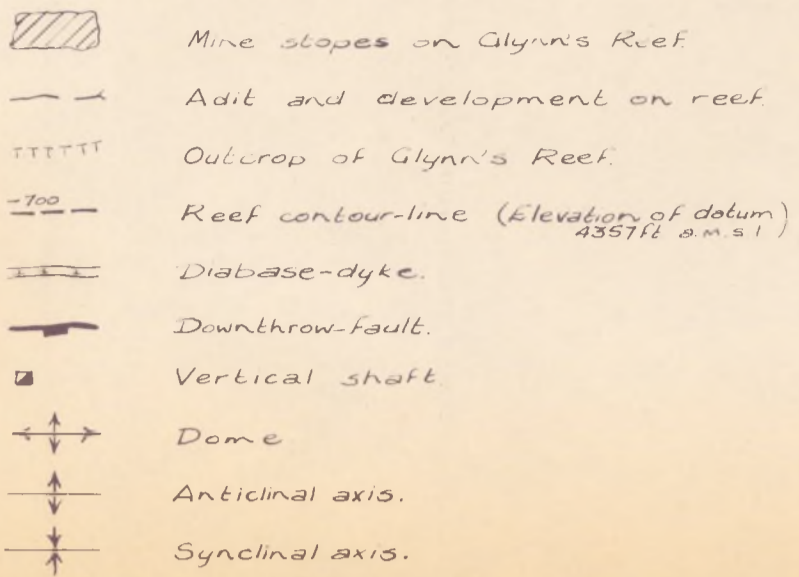 Mine stopes on Glynn's Reef.
Adit and development on reef.
Outcrop of Glynn's Reef.
-700
Reef contour-line (Elevation of datum)
4357ft a.m.s l )
Diabase-dyke.
Downthrow-fault.
Vertical shaft
Dome
Anticlinal axis.
Synclinal axis.